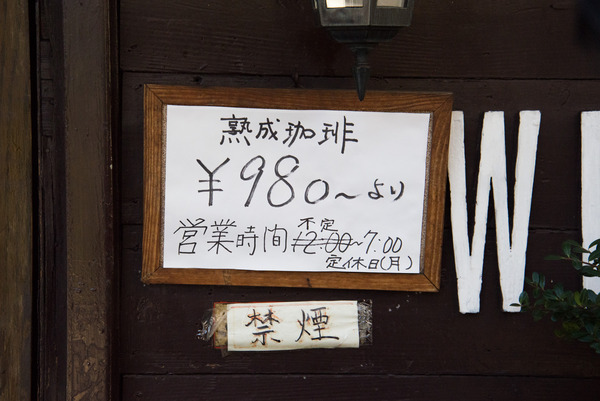 熟成珈琲
¥980~より
不定
営業時間12:00~7:00
定休日(月)
禁煙
W